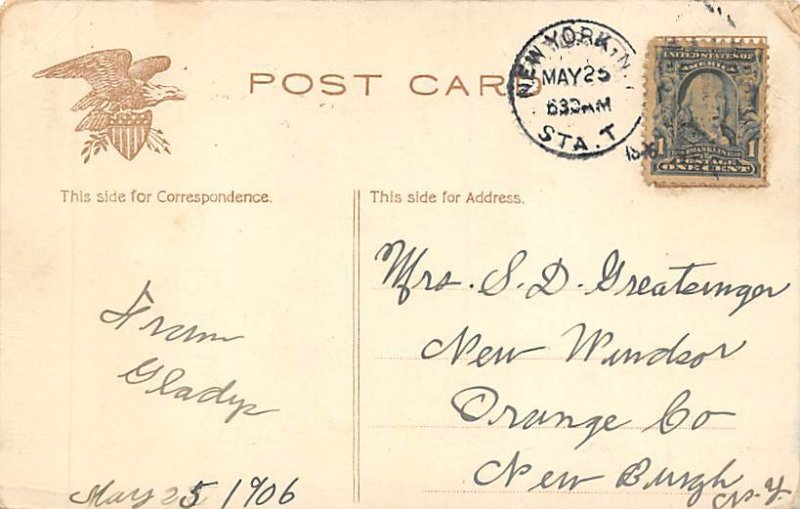 POST CARD
NEW YORK, N.
MAY 25
630AM
STA. T
UNITED STATES OF
AMERICA
1 FRANKLIN 1
POSTAGE
ONE CENT
This side for Correspondence.
From
Gladys
May 25 1906
This side for Address.
Mrs. S. D. Greatsinger
New Windsor
Orange Co
New Burgh
N.Y.